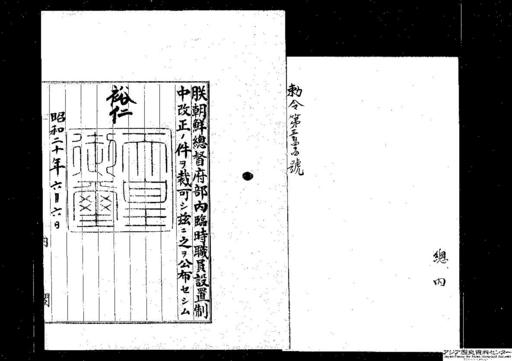 勅令第
號
總內
朕朝鮮總督府部內臨時職員設置制
中改正ノ件ヲ裁可シ茲ニ之ヲ公布セシム
裕仁
天皇
御璽
昭和二十年六月六日
內閣
アジア歴史資料センター